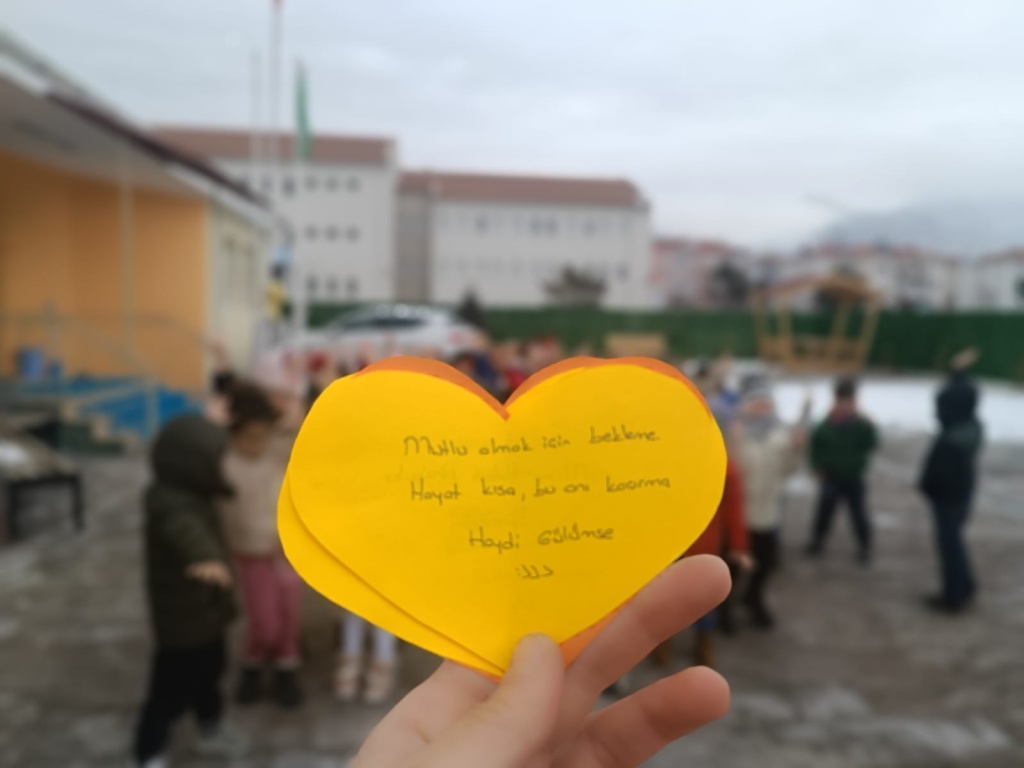 Mutlu olmak için bekleme.
Hayat kısa, bu anı kaçırma
Haydi Gülümse
:)))